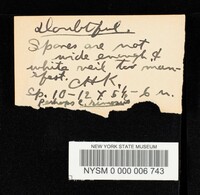 Doubtful.
Spores are not
wide enough &
white veil too man-
fest. CHK.
Sp. 10-12 X 5½-6 u.
Perhaps C.
NEW YORK STATE MUSEUM
NYSM 0 000 006 743